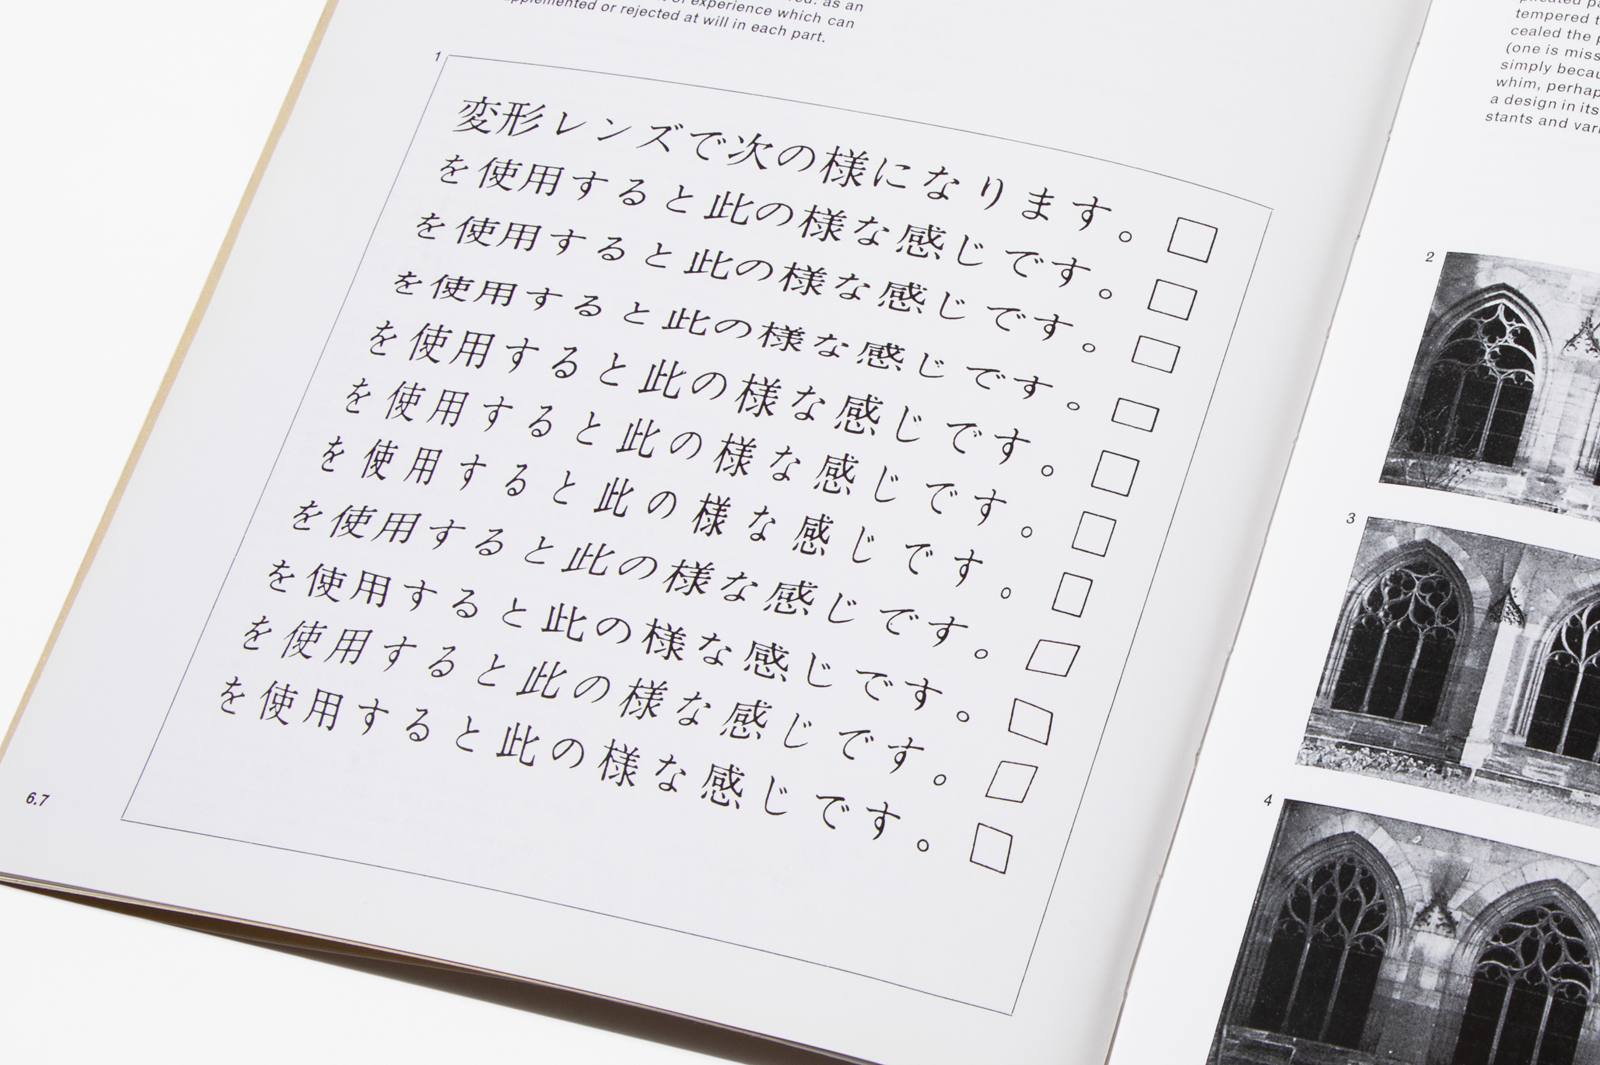 as an
of experience which can
or rejected at will in each part.
1
変形レンズで次の様になります。
を使用すると此の様な感じです。
を使用すると此の様な感じです。
を使用すると此の様な感じです。
を使用すると此の様な感じです。
を使用すると此の様な感じです。
を使用すると此の様な感じです。
を使用すると此の様な感じです。
を使用すると此の様な感じです。
を使用すると此の様な感じです。
を使用すると此の様な感じです。
6.7
tempered
cealed the
(one is
simply
whim,
a design in its
stants and
2
3
4